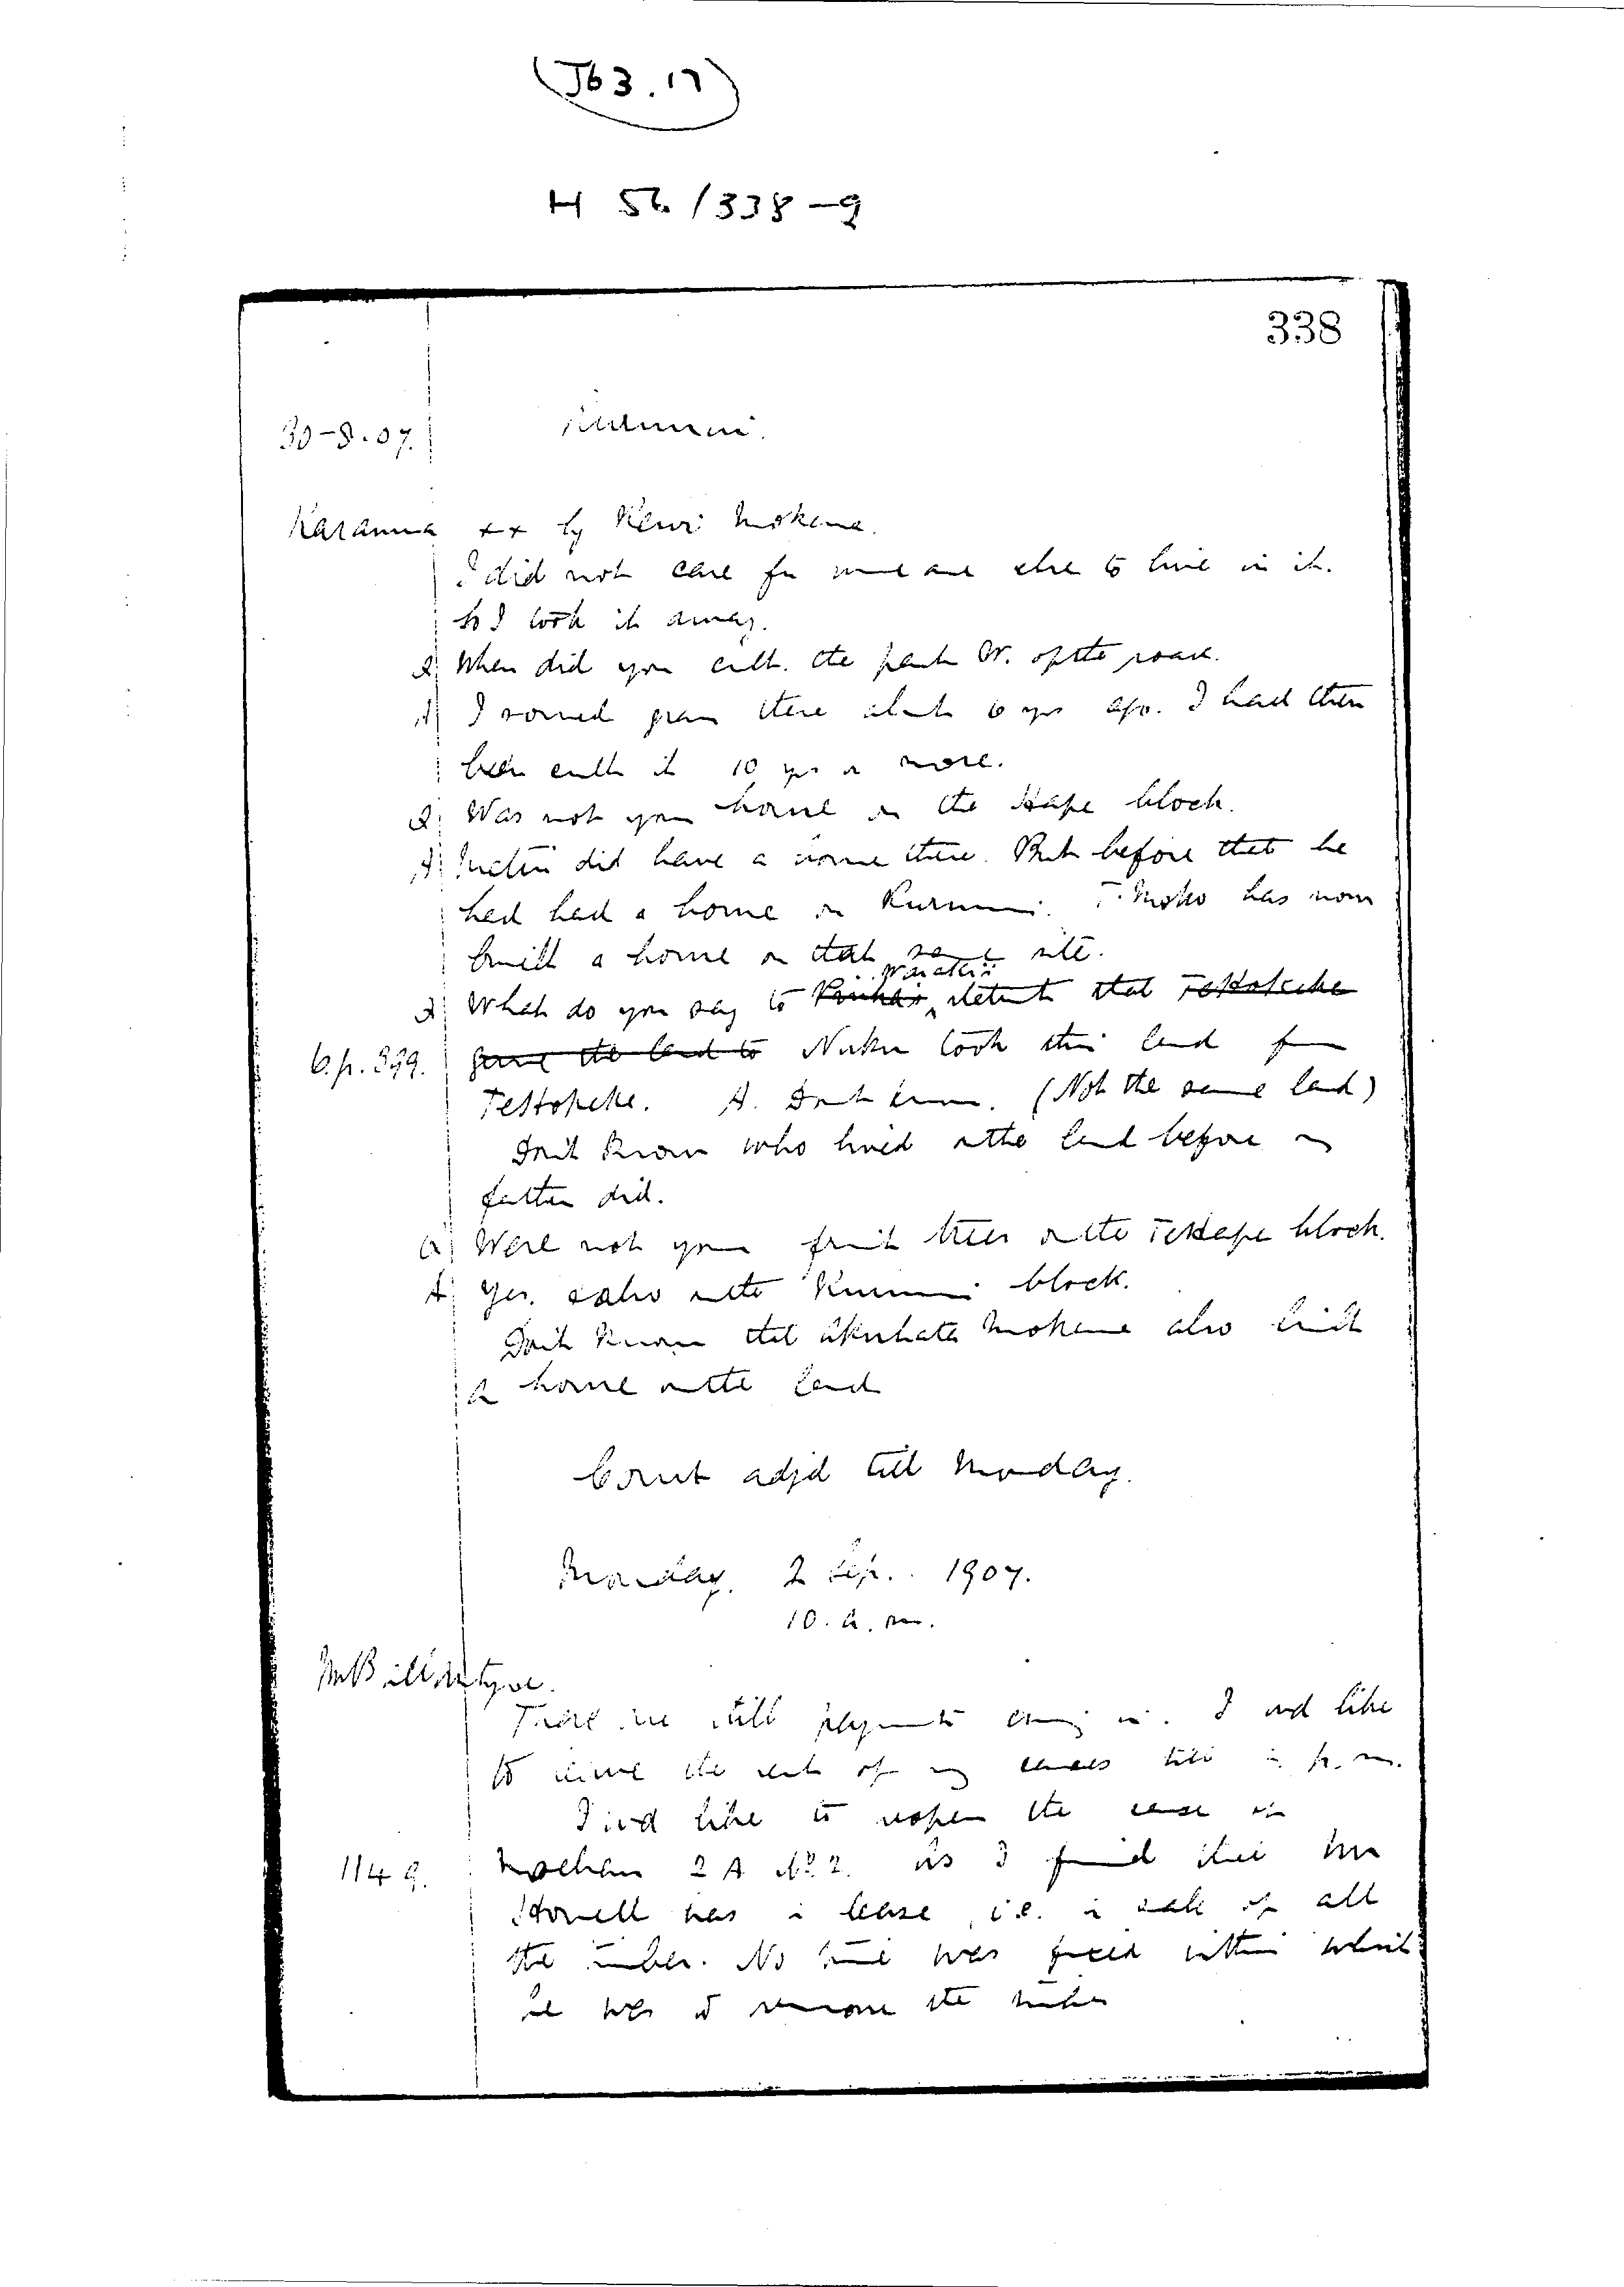 (J63.17)
H 56/338-9
338
30-8-07. Kurumui.
Karauna ++ by Rewi Mokena.
I did not care for some one else to live in it.
So I took it away.
Q When did you cult. the part W. of the road.
A I sowed grass there about 6 yrs ago. I had then
been cultg it 10 yrs or more.
Q Was not your house on the Hape block.
A did have a house there. But before that he
had had a house on . has now
built a house on that same site.
Q What do you say to Waratini's statemt that TeHokeke
6.p.339. gave the land to Nuku took this land from
TeHokeke. A. Dont know. (Not the same land)
Dont know who lived on the land before my
father did.
Q Were not your fruit trees on the TeHape block.
A Yes. & also on the block.
Dont know that Akuhata Mokena also built
a house on the land
Court adjd till Monday.
Monday. 2 Sep. 1907.
10. a. m.
There are still payments coming in. I wd like
to leave the rest of my cases till in p.m.
I wd like to reopen the case in
114 9. 2 A No. 2. as I find that Mr
Howell has a lease, i.e. a sale of all
the timber. No time was fixed within which
he was to remove the timber